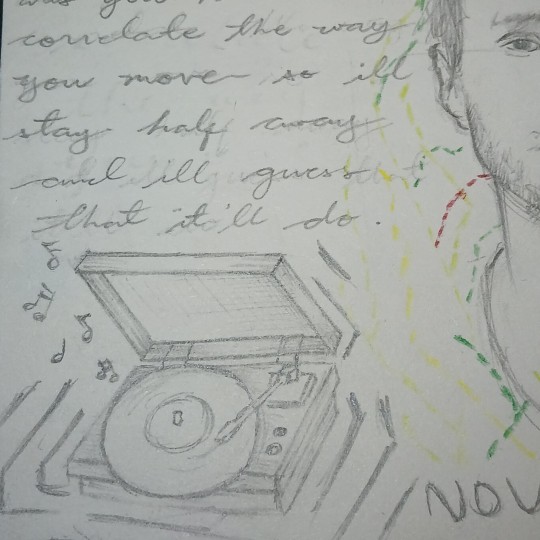 was you
correlate the way
you move so ill
stay half away
and ill guess
that it'll do.
NOV